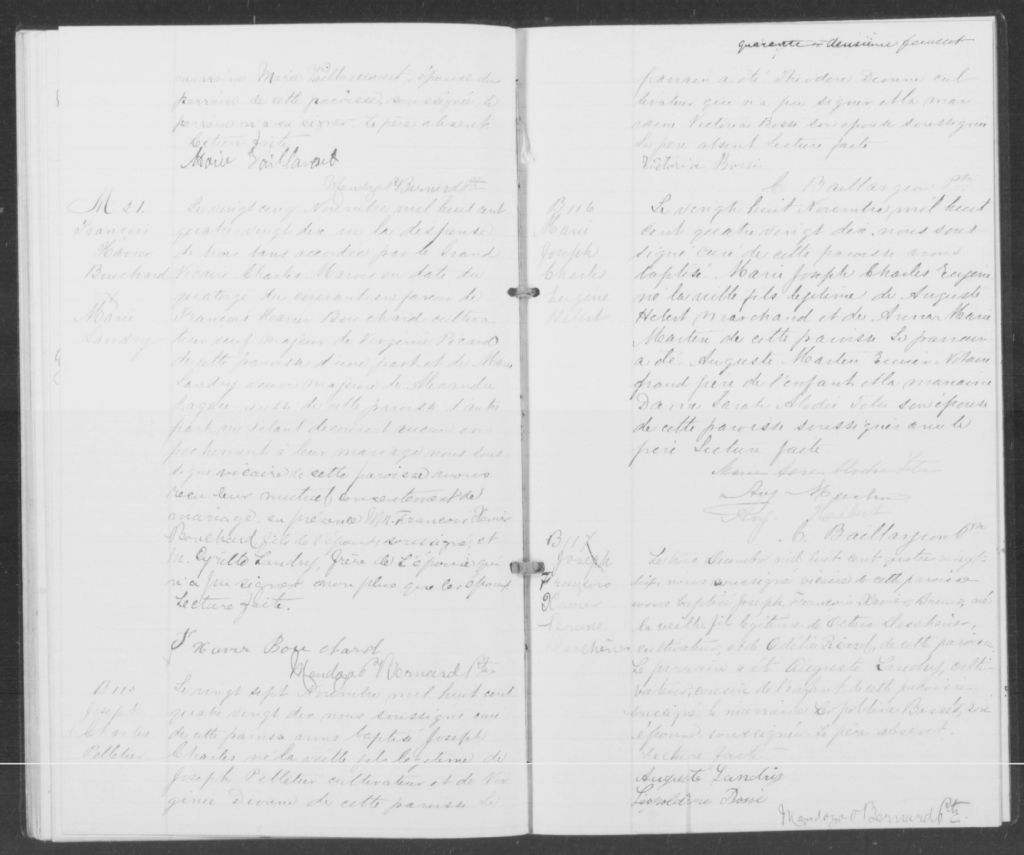 marraine Marie Vaillancourt, épouse du
parrain de cette paroisse, soussignée le
parrain n'a su signer. Le père absent.
Lecture faite
Marie Vaillancourt
Mendoza P. Bernard Ptre
M 21.
François
Xavier
Bouchard
&
Marie
Landry
Le vingt cinq Novembre mil huit cent
quatre vingt dix vu la dispense
de trois bans accordée par le Grand
Vicaire Charles Marois en date du
quatorze du courant en faveur de
François Xavier Bouchard cultiva
teur veuf majeur de Virginie Picard
de cette paroisse d'une part et de Marie
Landry veuve majeure de Alexandre
Gagné, aussi de cette paroisse d'autre
part, ne s'étant découvert aucun em
pêchement à leur mariage nous sous
signé vicaire de cette paroisse avons
reçu leur mutuel consentement de
mariage en présence Mr. François Xavier
Bouchard, fils de l'époux soussigné, et
M. Cyrille Landry, frère de l'épouse qui
n'a pu signer non plus que les époux
Lecture faite.
F Xavier Bouchard
Mendoza P Bernard Ptre
B 115
Joseph
Charles
Pelletier
Le vingt sept Novembre mil huit cent
quatre vingt dix nous soussigné curé
de cette paroisse avons baptisé Joseph
Charles né la veille fils légitime de
Joseph Pelletier cultivateur et de Vir
ginie Dionne de cette paroisse Le
quarante-deuxième feuillet
parrain a été Théodore Dionne cul
tivateur qui n'a pu signer et la mar
raine Victoria Bossé son épouse soussignée
Le père absent Lecture faite
Victoria Bossé
C. Baillargeon Ptre
B 116
Marie
Joseph
Charles
Eugène
Hébert
Le vingt huit Novembre, mil huit
cent quatre vingt dix nous sous
signé curé de cette paroisse avons
baptisé Marie Joseph Charles Eugène
né la veille fils légitime de Auguste
Hébert marchand et de Anna Marie
Martin de cette paroisse Le parrain
a été Auguste Martin Ecuier Notaire
grand père de l'enfant et la marraine
Dame Sarah Elodie Têtu son épouse
de cette paroisse soussignés avec le
père Lecture faite.
Marie Sara Elodie Têtu
Aug Martin
Aug Hébert
C. Baillargeon Ptre
B 117
Joseph
François
Xavier
Bruno
Deschênes
Le trois Decembre mil huit cent quatre vingt
dix, nous soussigné vicaire de cette paroisse
avons baptisé Joseph François Xavier Bruno, né
la veille fils légitime de Octave Deschênes,
cultivateur, et de Odélie Picard, de cette paroisse
Le parrain a été Auguste Landry, culti-
vateur, cousin de l'enfant de cette paroisse
soussigné la marraine Léopoldine Bossé, son
épouse soussignée Le père absent.
Lecture faite
Auguste Landry
Léopoldine Bossé
Mendoza P Bernard Ptre